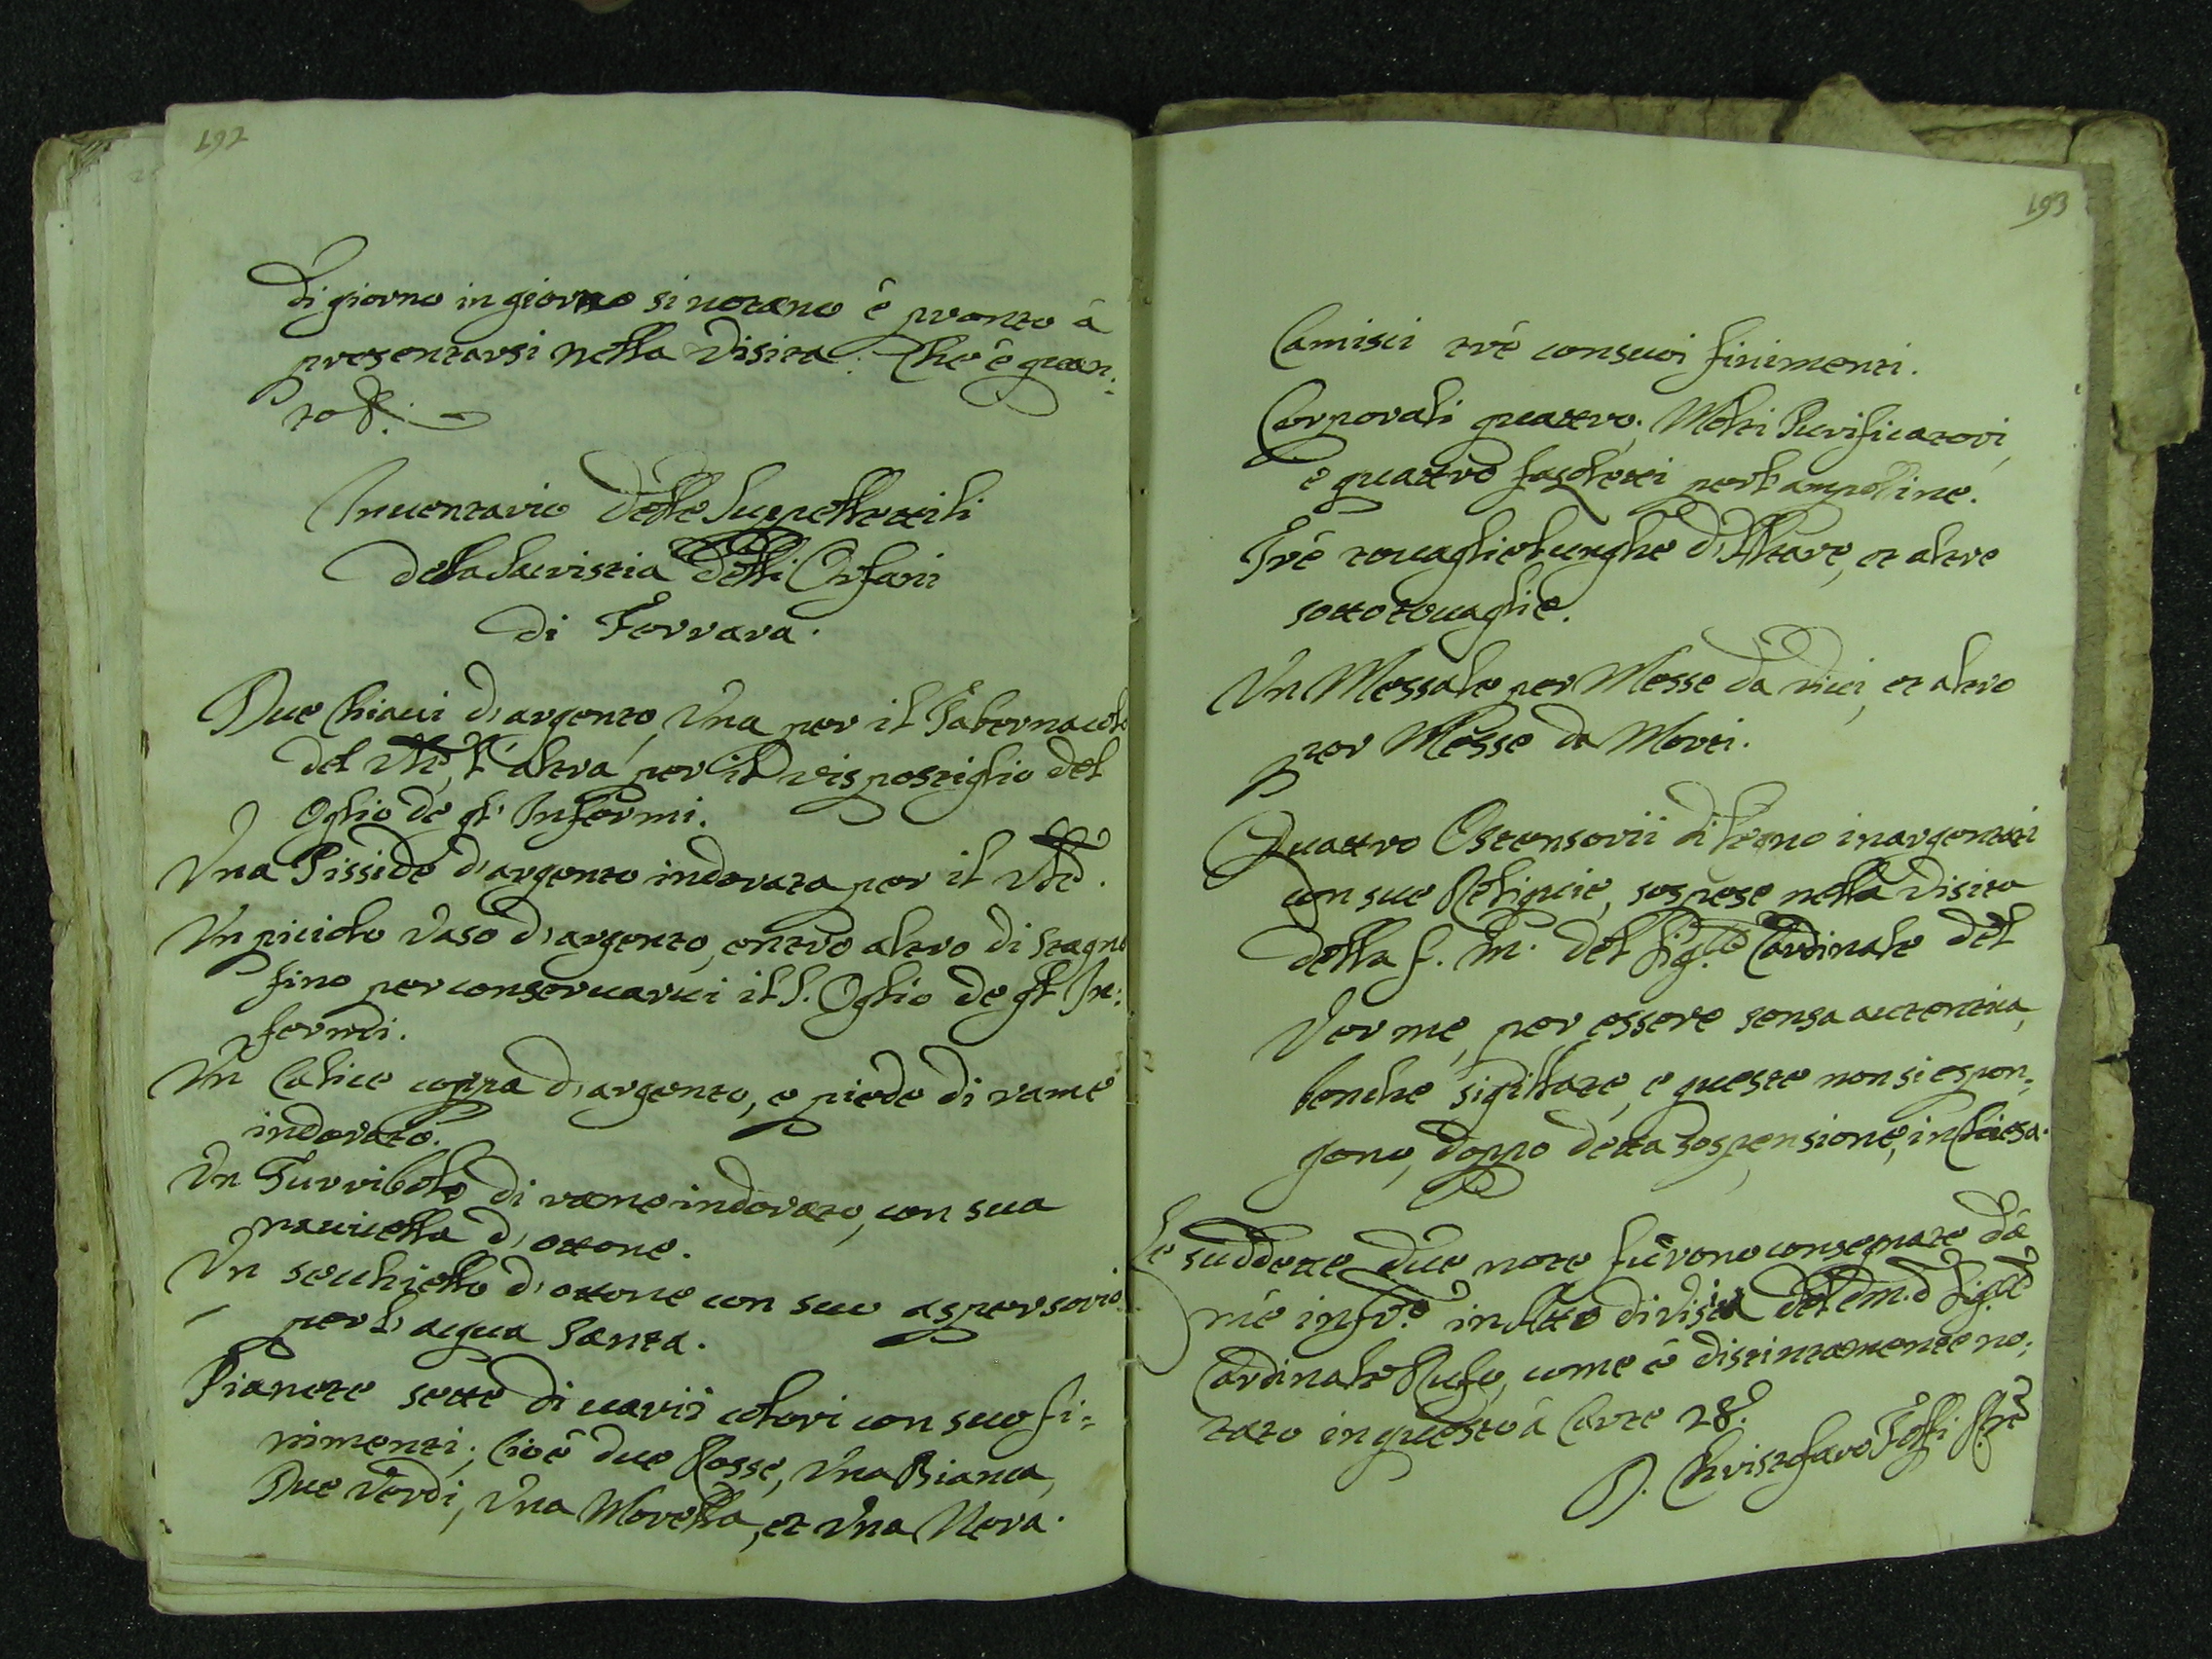 192
Di giorno in giorno si notano è pronto à
presentarsi nella Visita. Che è quan:
to &.
Inuentario delle Suppellettili
della Sacristia delli Orfani
di Ferrara.
Due Chiaui d'argento, Una per il Tabernacolo
del Ven.e, l'altra per il ripostiglio del
Oglio de gl' Infermi.
Una Pisside d'argento indorata per il Ven.e.
Un piciolo Vaso d'argento, entro altro di stagno
fino per conseruarui il S. Oglio de gl' In:
fermi.
Un Calice coppa d'argento, e piede di rame
indorato.
Un Turribolo di rame indorato, con sua
nauicella d'ottone.
Un secchiello d'ottone con suo aspersorio
per l'acqua Santa.
Pianete sette di uarii colori con suo fi=
nimenti; Cioè due Rosse, Una Bianca,
Due Verdi, Una Morella, et Una Nera.
193
Camisci trè con suoi finimenti.
Corporali quattro; Molti Purificatori,
e quattro fazoletti per l'ampoline.
Trè touaglie lunghe d'Altare, et altre
sotto touaglie.
Un Messale per Messe da Viui, et altro
per Messe da Morti.
Quattro Ostensorii di legno inargentati
con sue Reliquie, sospese nella Visita
della f. m. del Sig.r Cardinale Del
Verme, per essere senza autentica,
benche sigillate, e queste non si espon:
gono, doppo detta sospensione, in Chiesa.
Le suddette due note furono consegnate da
me infr.o in Atto di Visita del Em.o Sig.r
Cardinale Ruffo, come è distintamente no:
tato in questo à Carte 28.
D. Christofaro